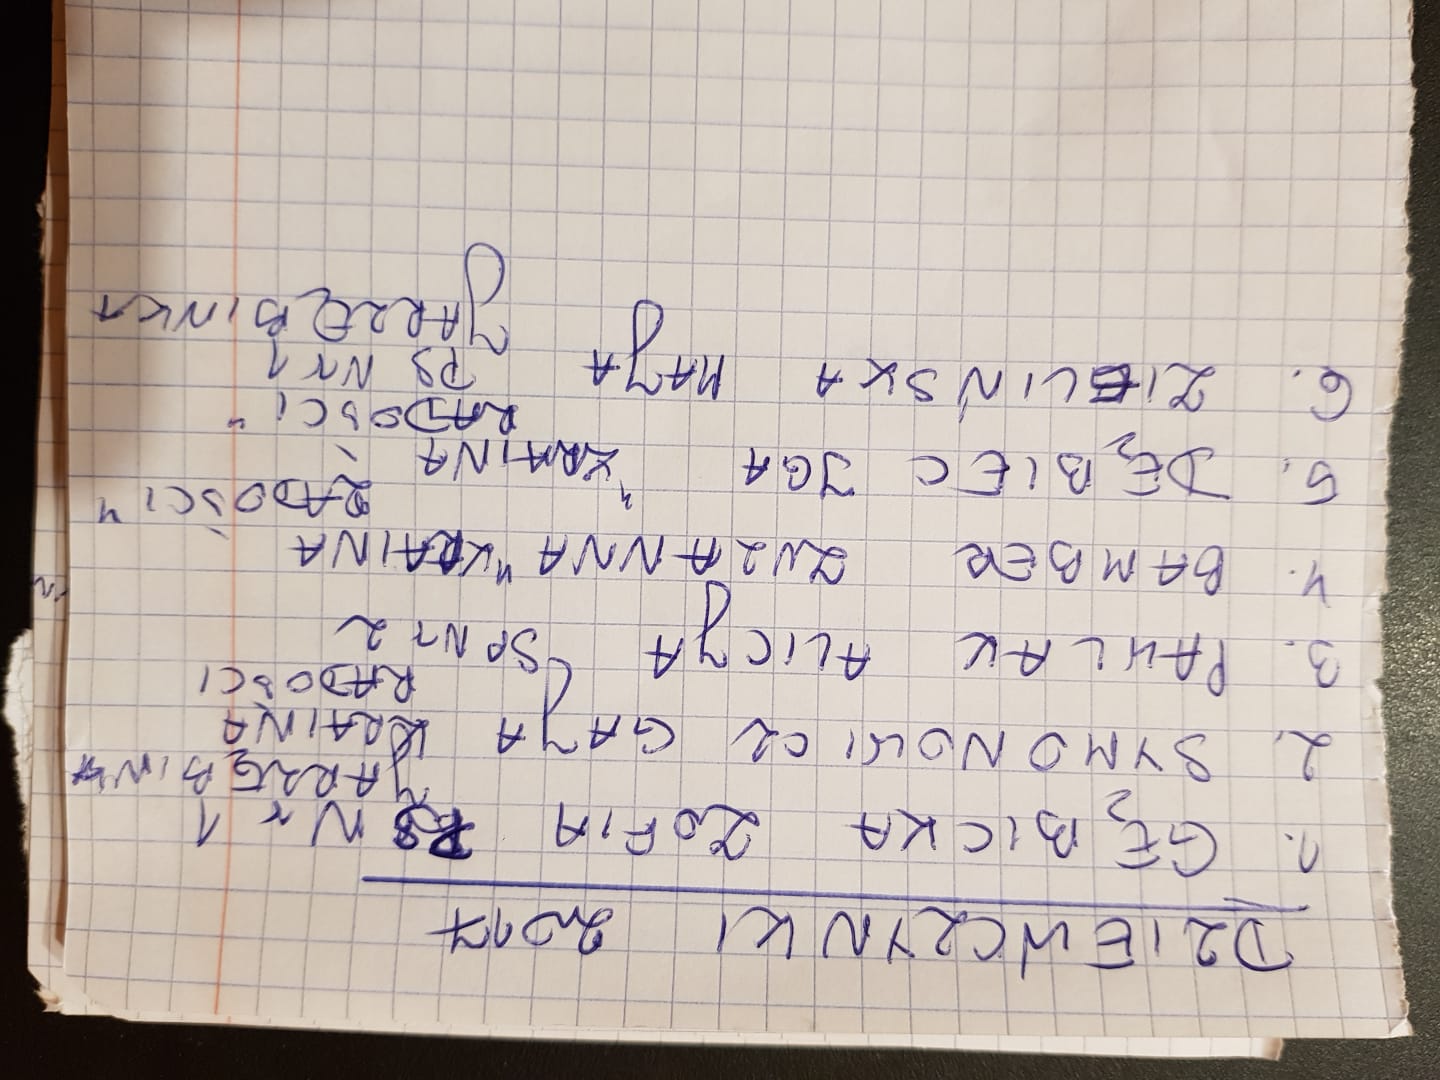 DZIEWCZYNKI 2017
1. GĘBICKA ZOFIA PS Nr 1
JARZĘBINKA
2. SYMONOWICZ GAJA KRAINA
RADOŚCI
3. PAWLAK ALICJA SP Nr 2
4. BAMBER ZUZANNA "KRAINA
RADOŚCI"
5. DĘBIEC IGA "KRAINA
RADOŚCI"
6. ZIELIŃSKA MAJA PS Nr 1
JARZĘBINKA